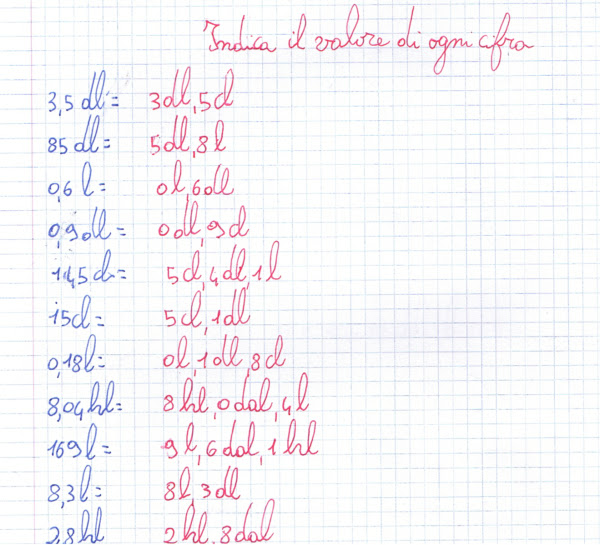 Indica il valore di ogni cifra
3,5 dl = 3dl, 5cl
85 dl = 5dl, 8l
0,6 l = 0l, 6dl
0,9 dl = 0dl, 9cl
145cl = 5cl, 4dl, 1l
15cl = 5cl, 1dl
0,18l = 0l, 1dl, 8cl
8,04hl = 8hl, 0dal, 4l
169l = 9l, 6dal, 1hl
8,3l = 8l, 3dl
2,8hl 2hl, 8dal